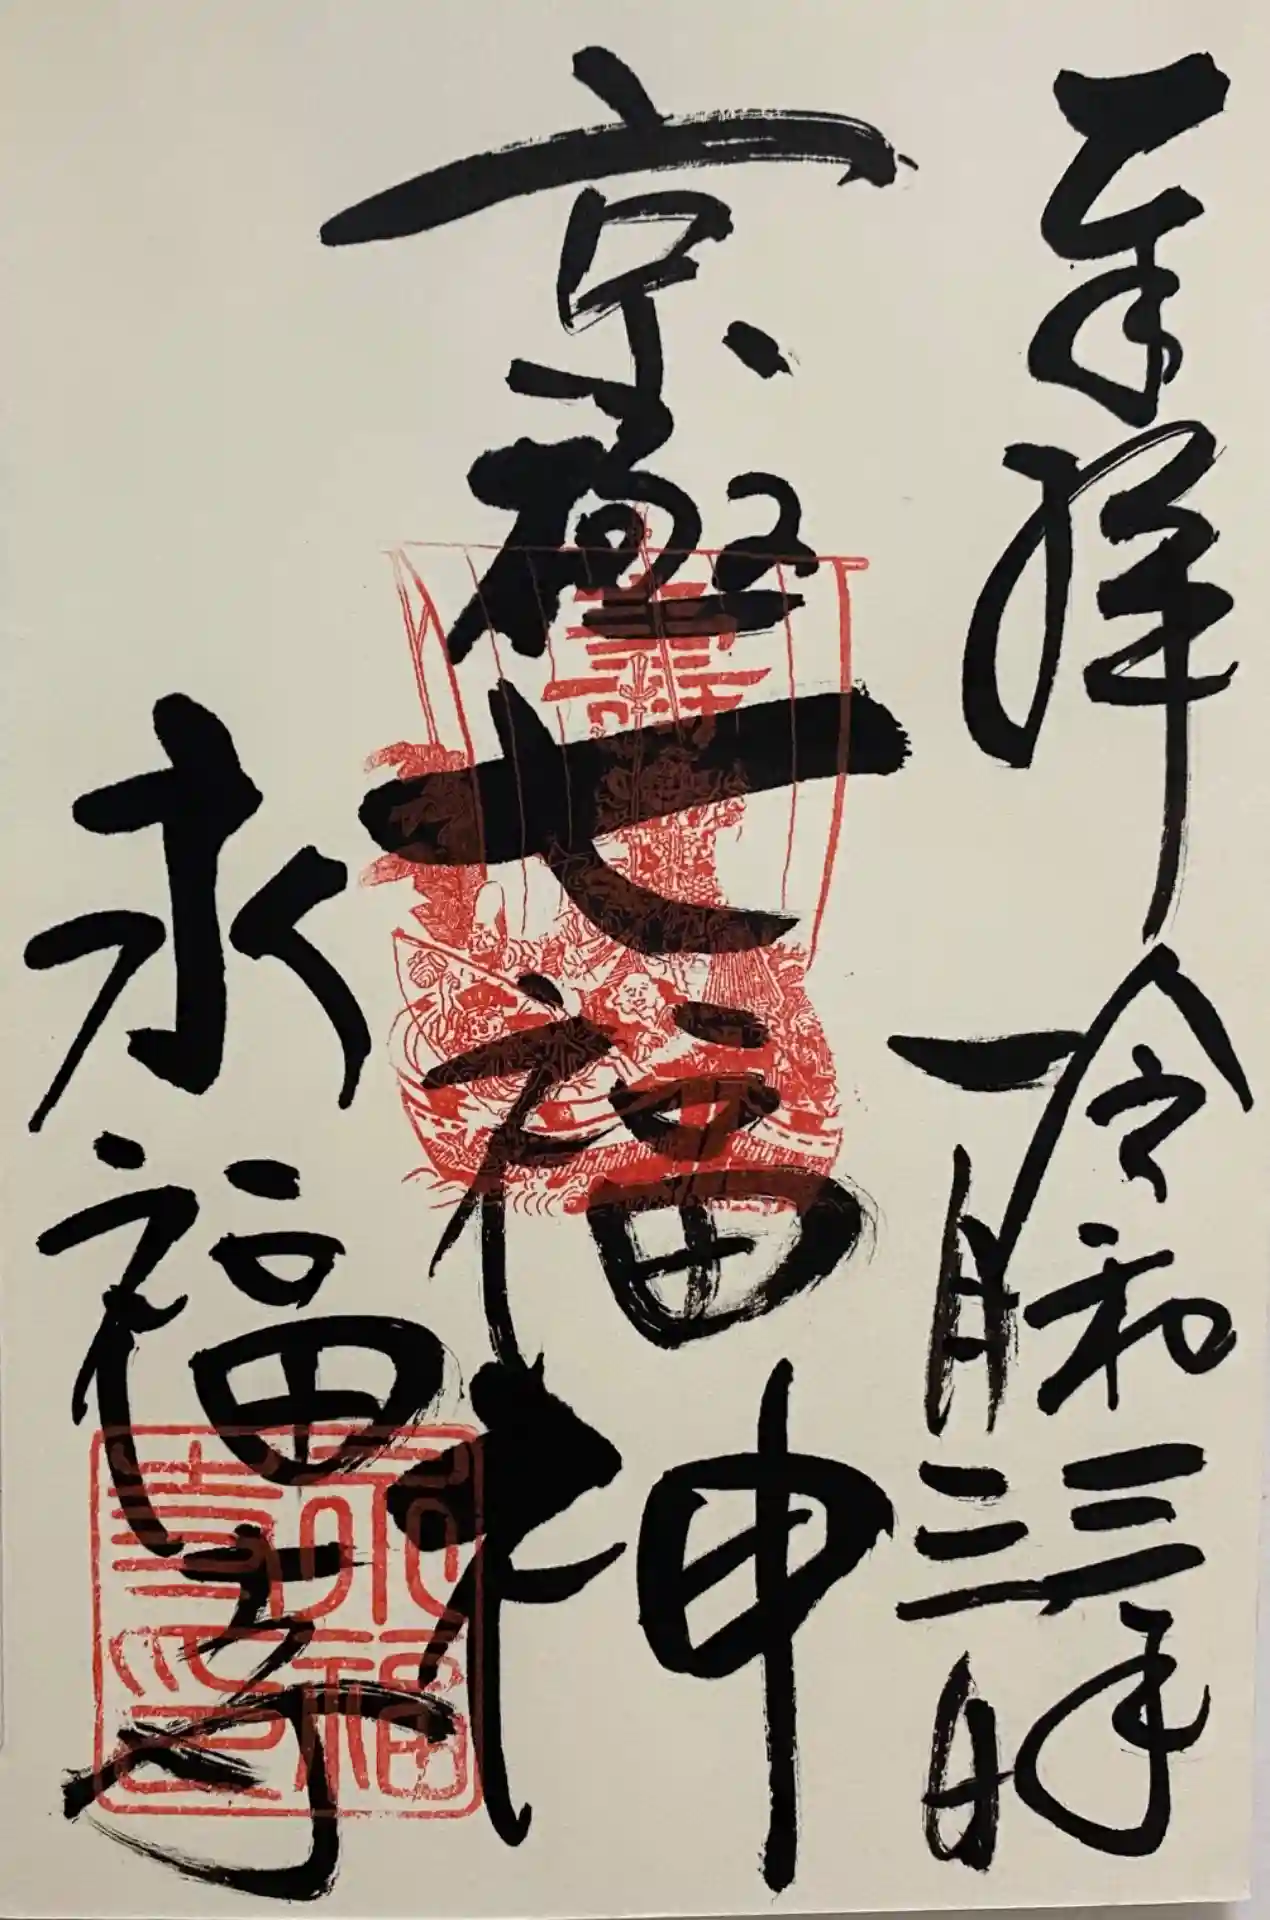 奉拝
令和三年
一月三日
京極七福神
永福寺
壽
永福
寺印